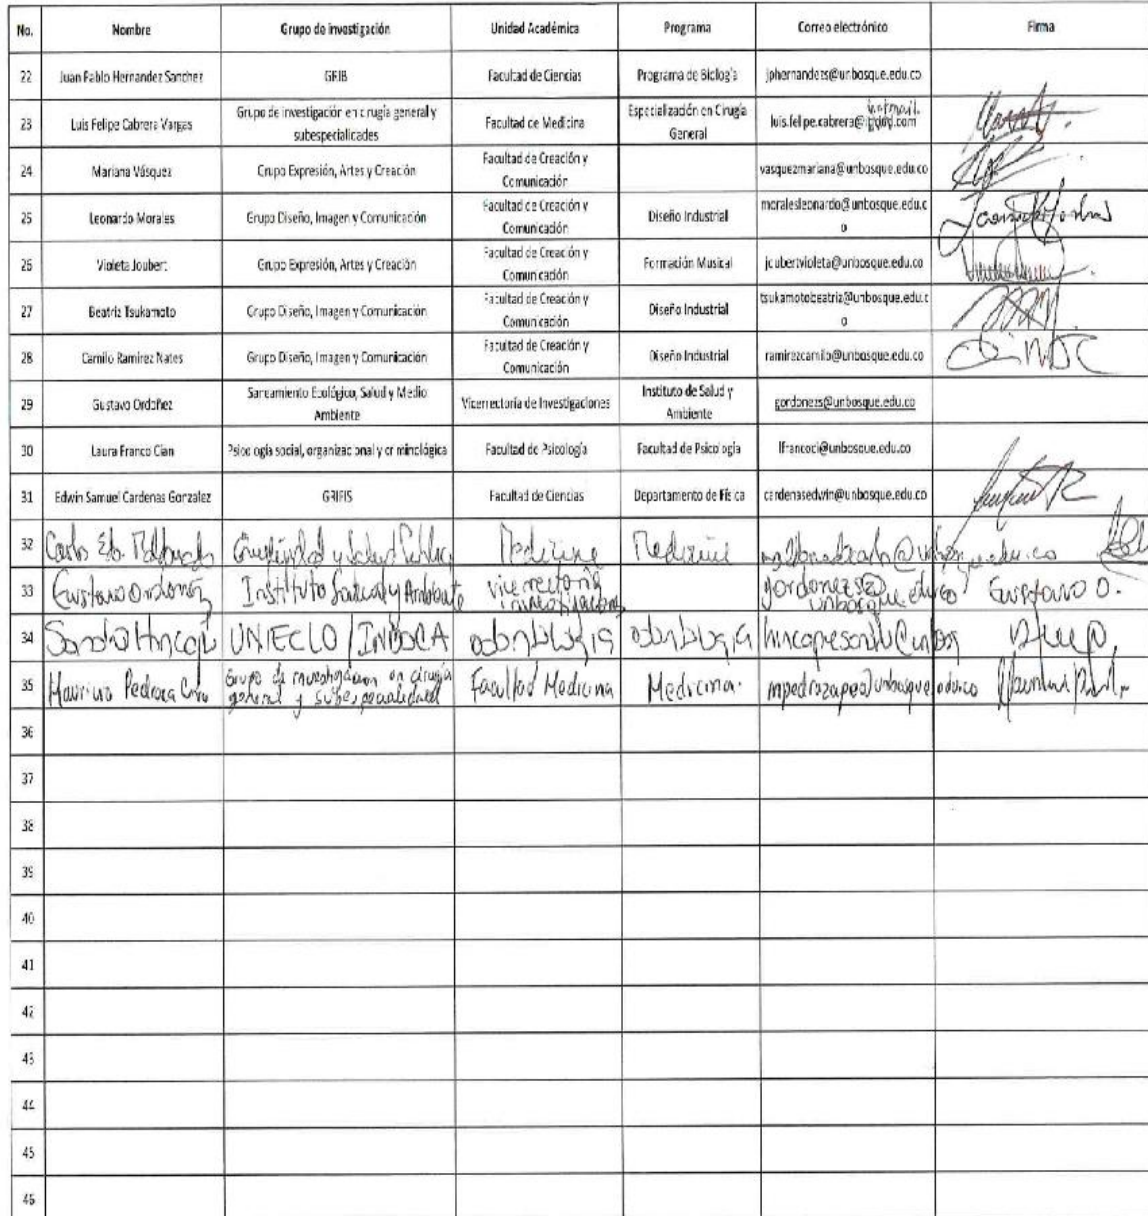 No. Nombre Grupo de investigación Unidad Académica Programa Correo electrónico Firma
22 Juan Pablo Hernandez Sanchez GRIB Facultad de Ciencias Programa de Biología jphernandezs@unbosque.edu.co
hotmail.
23 Luis Felipe Cabrera Vargas Grupo de investigación en cirugía general y subespecialidades Facultad de Medicina Especialización en Cirugía General luis.felipe.cabrera@
24 Mariana Vásquez Grupo Expresión, Artes y Creación Facultad de Creación y Comunicación vasquezmariana@unbosque.edu.co
25 Leonardo Morales Grupo Diseño, Imagen y Comunicación Facultad de Creación y Comunicación Diseño Industrial moralesleonardo@unbosque.edu.c
o
26 Violeta Joubert Grupo Expresión, Artes y Creación Facultad de Creación y Comunicación Formación Musical joubertvioleta@unbosque.edu.co
27 Beatriz Tsukamoto Grupo Diseño, Imagen y Comunicación Facultad de Creación y Comunicación Diseño Industrial tsukamotobeatriz@unbosque.edu.c
o
28 Camilo Ramirez Nates Grupo Diseño, Imagen y Comunicación Facultad de Creación y Comunicación Diseño Industrial ramirezcamilo@unbosque.edu.co
29 Gustavo Ordoñez Saneamiento Ecológico, Salud y Medio Ambiente Vicerrectoría de Investigaciones Instituto de Salud y Ambiente gordonezs@unbosque.edu.co
30 Laura Franco Cian Psicología social, organizacional y criminológica Facultad de Psicología Facultad de Psicología lfrancoci@unbosque.edu.co
31 Edwin Samuel Cardenas Gonzalez GRIFIS Facultad de Ciencias Departamento de Física cardenasedwin@unbosque.edu.co
32 Carlos y Salud Medicina Medicina
33 Gustavo Ordoñez Instituto Salud y Ambiente vicerrectoria investigaciones gordonezs@unbosque.edu.co Gustavo O.
34 UNIECLO / INBOCA odontología odontología
35 Pedroza Grupo de investigación en cirugía general y subespecialidades Facultad Medicina Medicina. mpedrozapeo@unbosque.edu.co
36
37
38
39
40
41
42
43
44
45
46